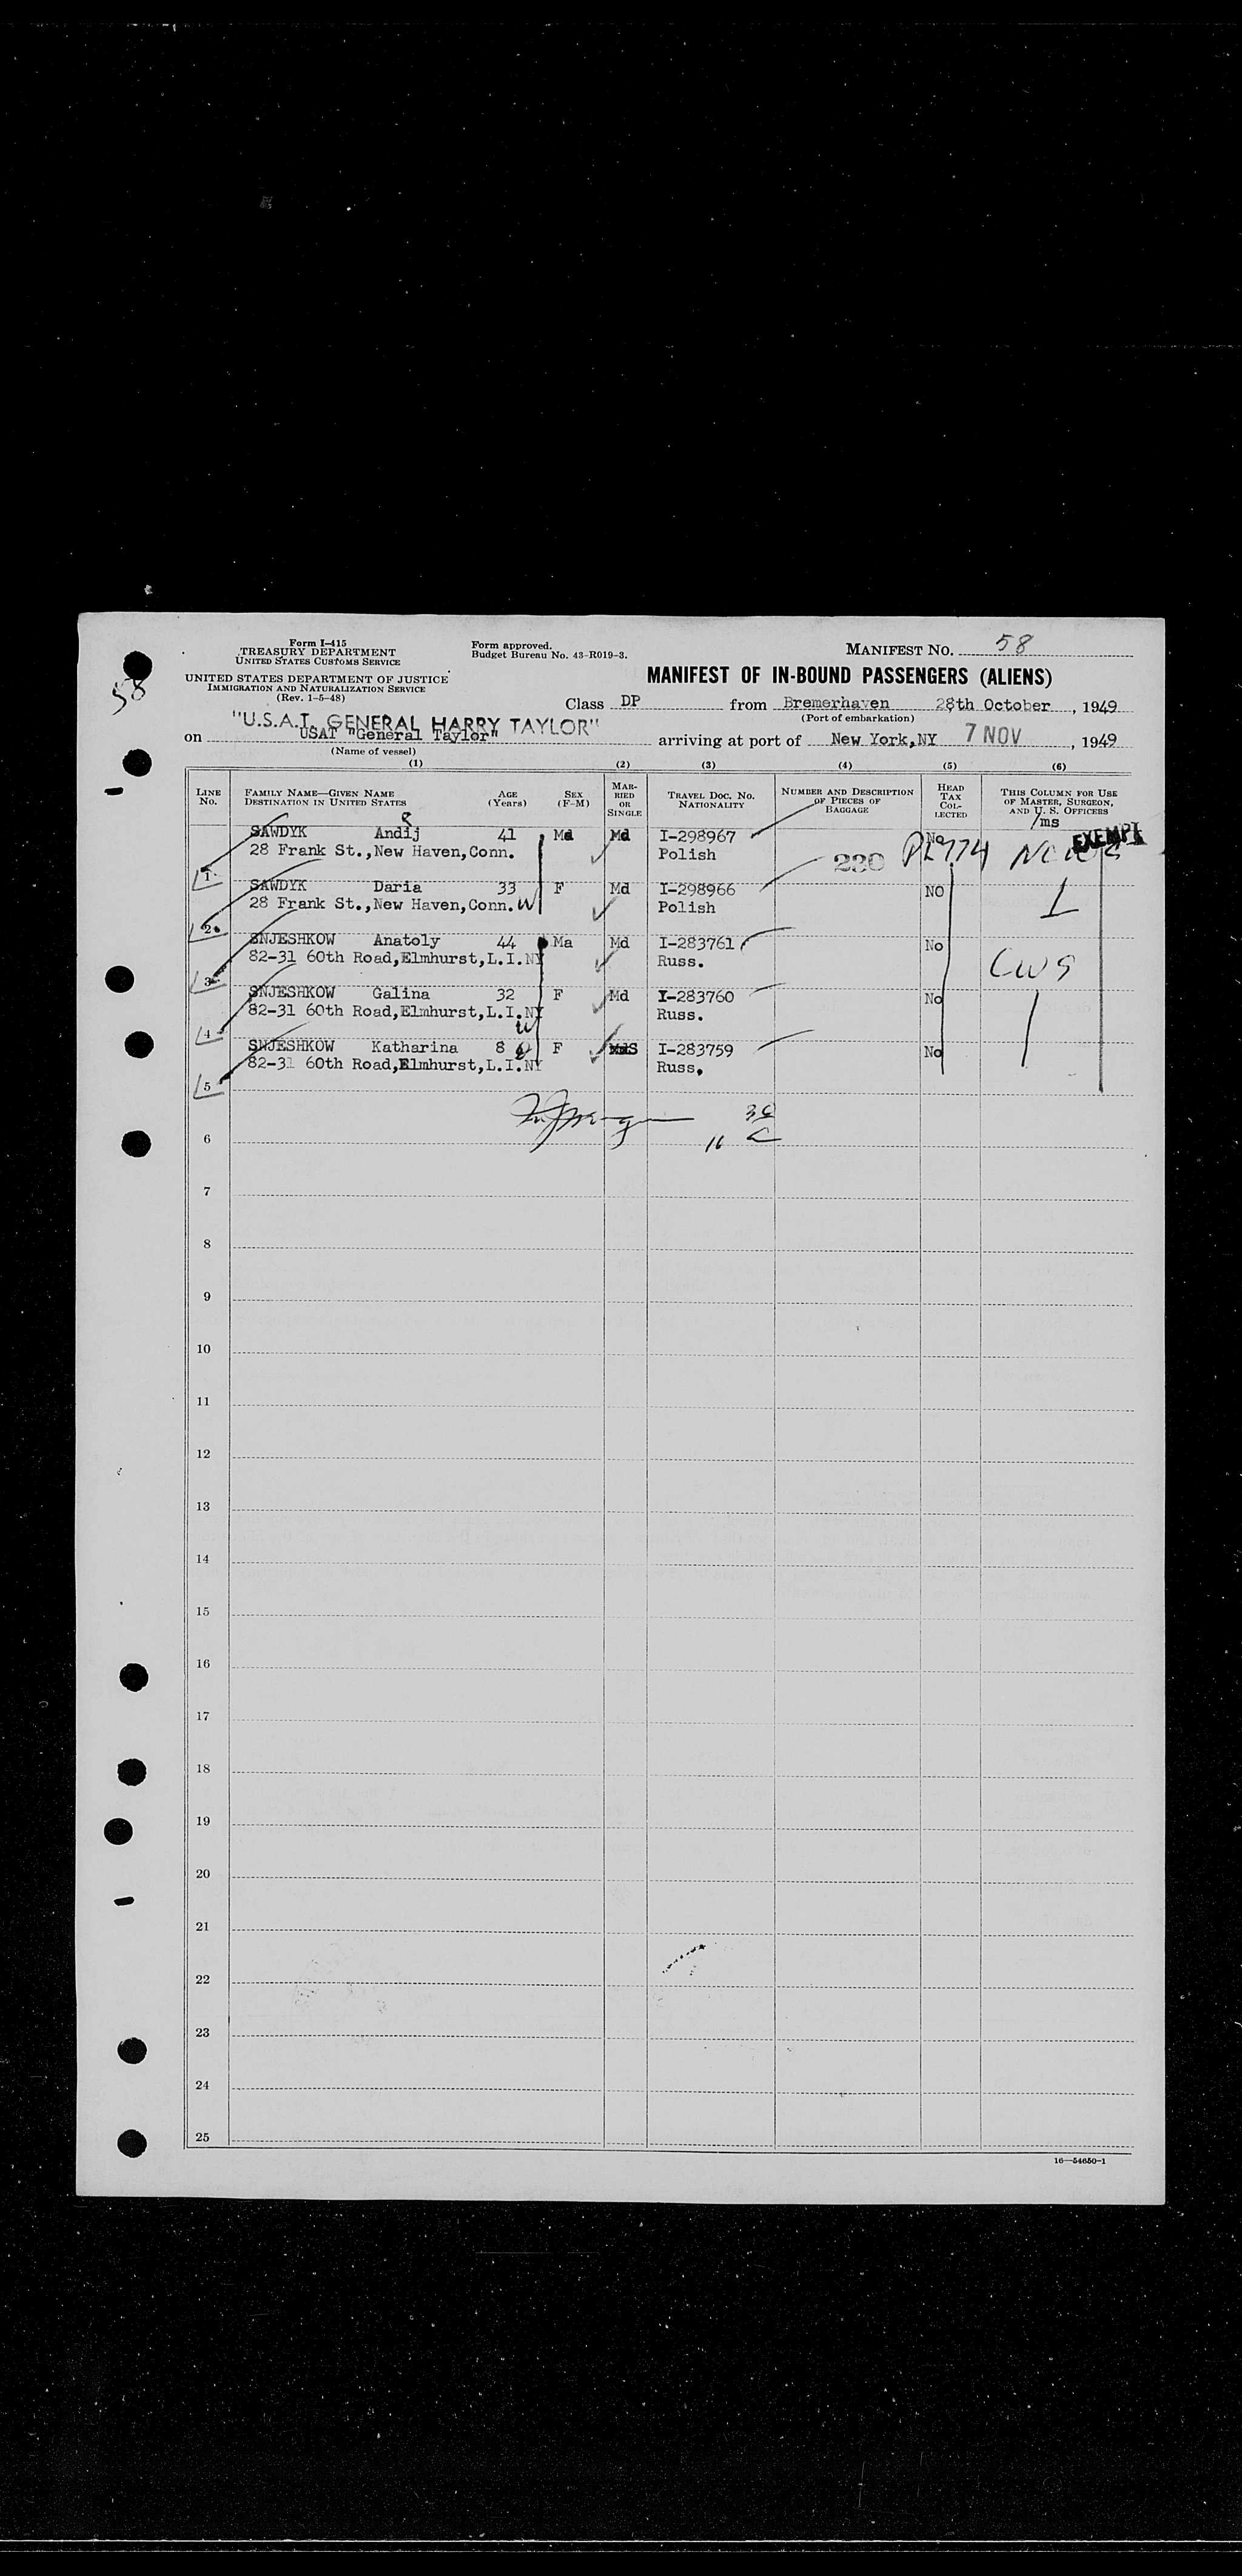 Form I-415
TREASURY DEPARTMENT
UNITED STATES CUSTOMS SERVICE
UNITED STATES DEPARTMENT OF JUSTICE
IMMIGRATION AND NATURALIZATION SERVICE
(Rev. 1-5-48)
Form approved.
Budget Bureau No. 43-R019-3.
MANIFEST NO. 58
58
MANIFEST OF IN-BOUND PASSENGERS (ALIENS)
Class DP from Bremerhaven 28th October, 1949
(Port of embarkation)
"U.S.A.T. GENERAL HARRY TAYLOR"
on USAT "General Taylor" arriving at port of New York,NY 7 NOV, 1949
(Name of vessel)
(1) (2) (3) (4) (5) (6)
LINE NO.
FAMILY NAME—GIVEN NAME
DESTINATION IN UNITED STATES
AGE (Years)
SEX (F-M)
MARRIED OR SINGLE
TRAVEL DOC. NO.
NATIONALITY
NUMBER AND DESCRIPTION OF PIECES OF BAGGAGE
HEAD TAX COLLECTED
THIS COLUMN FOR USE OF MASTER, SURGEON, AND U. S. OFFICERS
/ms
EXEMPT
1 SAWDYK Andij 41 Md Md I-298967 No
28 Frank St.,New Haven,Conn. Polish 230 PL774
2 SAWDYK Daria 33 F Md I-298966 NO
28 Frank St.,New Haven,Conn. W Polish
3 SNJESHKOW Anatoly 44 Ma Md I-283761 No
82-31 60th Road,Elmhurst,L.I.NY Russ. CWS
4 SNJESHKOW Galina 32 F Md I-283760 No
82-31 60th Road,Elmhurst,L.I.NY Russ.
5 SNJESHKOW Katharina 8 F S I-283759 No
82-31 60th Road,Elmhurst,L.I.NY Russ.
6
7
8
9
10
11
12
13
14
15
16
17
18
19
20
21
22
23
24
25
16—54650-1